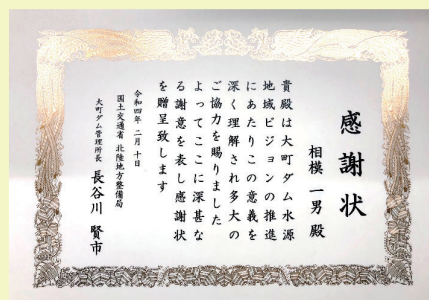 感謝状
相模 一男 殿
貴殿は大町ダム水源
地域ビジョンの推進
にあたりこの意義を
深く理解され多大の
ご協力を賜りました
よってここに深甚な
る謝意を表し感謝状
を贈呈致します
令和四年 二月 十日
国土交通省 北陸地方整備局
大町ダム管理所長 長谷川 賢市